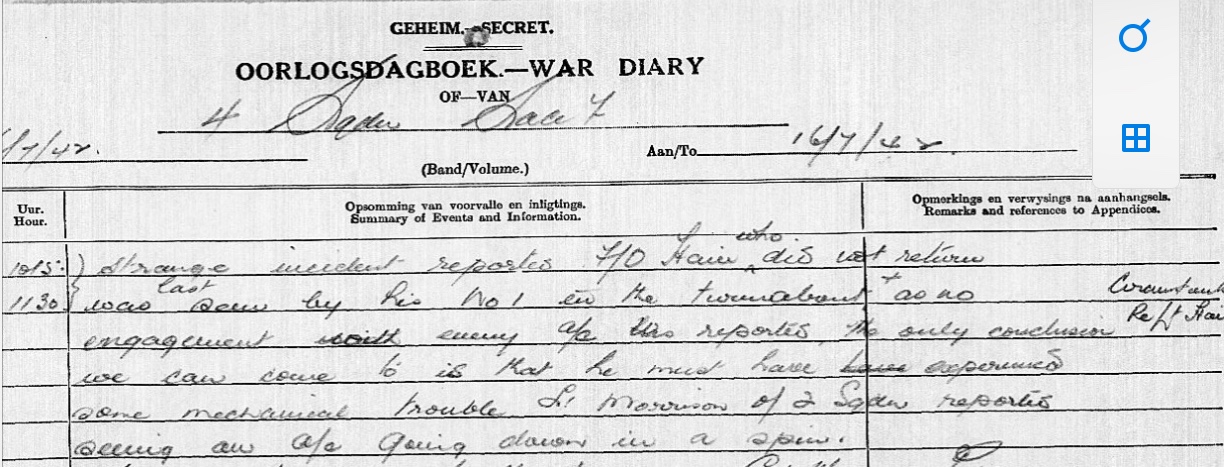 GEHEIM.—SECRET.
OORLOGSDAGBOEK.—WAR DIARY
OF—VAN
4 Sqdn Saaf
/7/42.
Aan/To 16/7/42.
(Band/Volume.)
Uur.
Hour.
Opsomming van voorvalle en inligtings.
Summary of Events and Information.
Opmerkings en verwysings na aanhangsels.
Remarks and references to Appendices.
1015: Strange incident reported F/O Hair who did not return
1130 was last seen by his No 1 in the turnabout + as no
engagement with enemy a/c was reported, the only conclusion
we can come to is that he must have have experienced
some mechanical trouble Lt Morrison of 2 Sqdn reported
seeing an a/c going down in a spin.